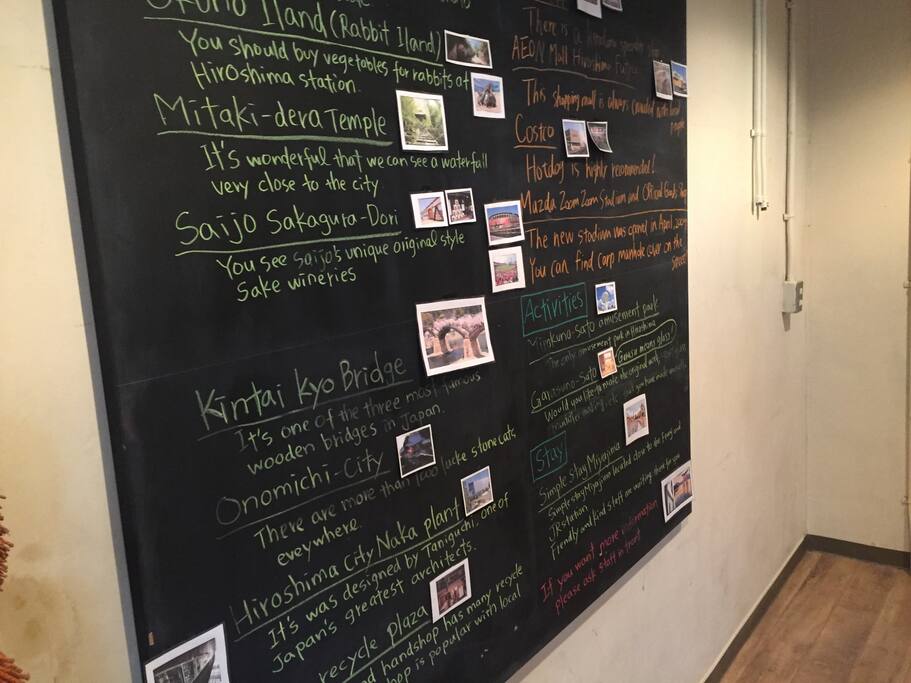 Iland (Rabbit Iland)
You should buy vegetables for rabbits at
Hiroshima station.
Mitaki-dera Temple
It's wonderful that we can see a waterfall
very close to the city
Saijo Sakagura-Dori
You see saijo's unique original style
Sake wineries
Kintai kyo Bridge
It's one of the three most famous
wooden bridges in Japan.
Onomichi-City
There are more than lucke stone cats
eveywhere.
Hiroshima City Naka plant
It's was designed by Taniguchi, one of
Japan's greatest architects.
recycle plaza
handshop has many recycle
is popular with local
There is a
AEON Mall Hiroshima
This shopping mall is always crowded with
people
Costco
Hotdog is highly recommended!
Mazda Zoom Zoom Stadium and Official Goods Shop
The new stadium was opend in April 2009
You can find carp manhole cover on the
street
Activities
amusement park
The only amusement park in Hiroshima
Garasuno-Sato
Garasu means glass!
Would you like to make the original
making, etc. that you have made
Stay
Simple Stay Miyajima
Simple stay Miyajima located close to the Ferry and
JR station.
Friendly and kind staff are waiting there for you
If you want more information
please ask staff in front